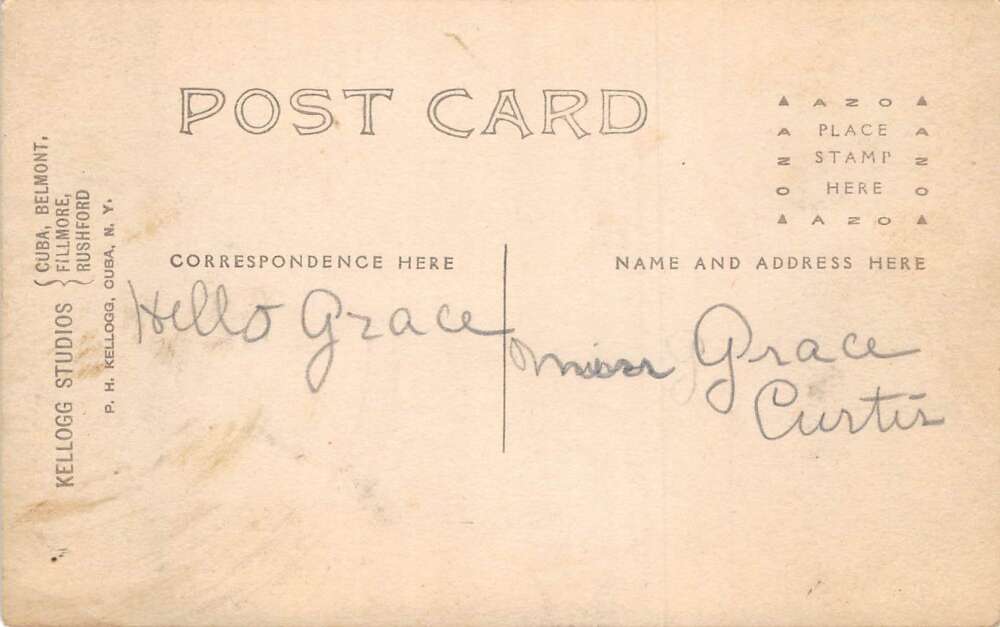 POST CARD
▲ AZO ▲
A PLACE A
Z STAMP Z
O HERE O
▲ AZO ▲
KELLOGG STUDIOS { CUBA, BELMONT,
FILLMORE,
RUSHFORD
P. H. KELLOGG, CUBA, N. Y.
CORRESPONDENCE HERE
NAME AND ADDRESS HERE
Hello Grace
Miss Grace
Curtis